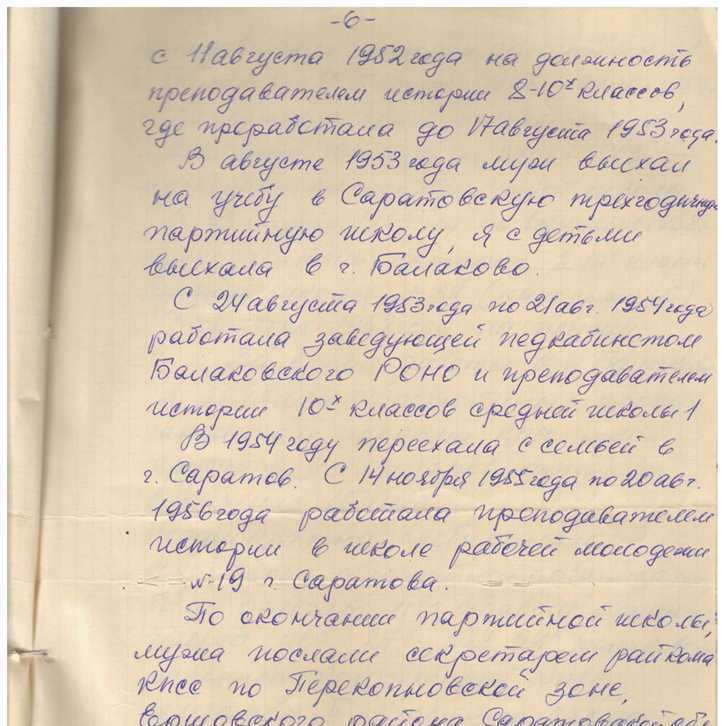 -6-
с 11 августа 1952 года на должность
преподавателем истории 8-10х классов,
где проработала до 17 августа 1953 года.
В августе 1953 года муж выехал
на учёбу в Саратовскую трёхгодичную
партийную школу, я с детьми
выехала в г. Балаково.
С 24 августа 1953 года по 21 авг. 1954 года
работала заведующей педкабинетом
Балаковского РОНО и преподавателем
истории 10х классов средней школы 1
В 1954 году переехала с семьей в
г. Саратов. С 14 ноября 1955 года по 20 авг.
1956 года работала преподавателем
истории в школе рабочей молодежи
№ 19 г. Саратова.
По окончании партийной школы,
мужа послали секретарем райкома
КПСС по Перекопновской зоне,
Ершовского района Саратовской об